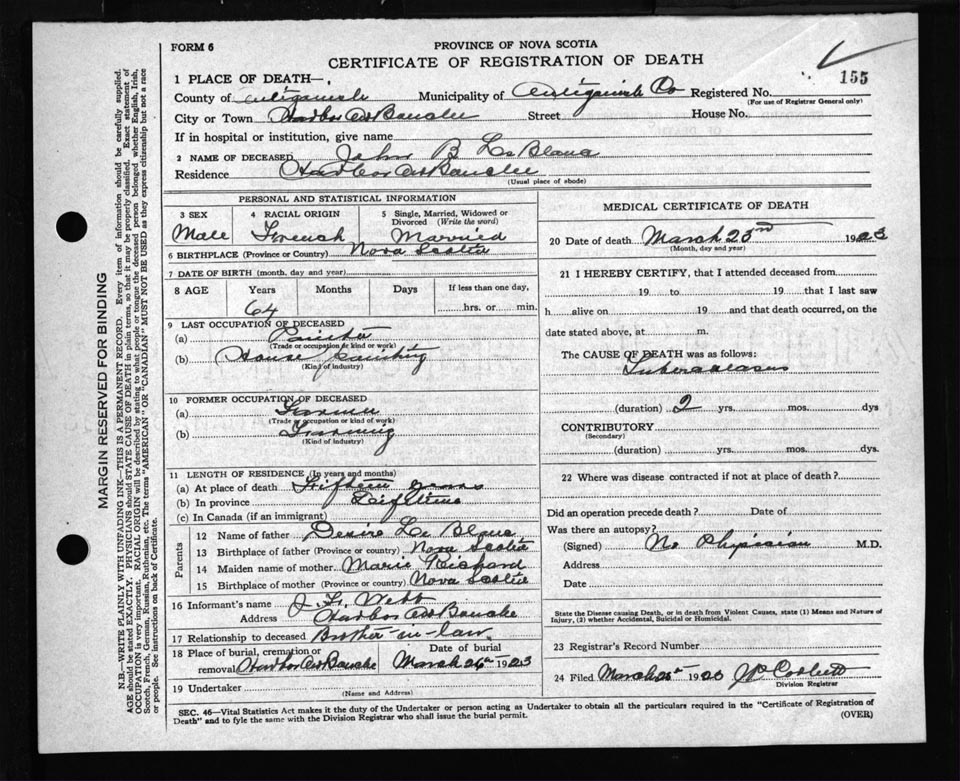 FORM 6
PROVINCE OF NOVA SCOTIA
CERTIFICATE OF REGISTRATION OF DEATH
155
1 PLACE OF DEATH—
County of Antigonish Municipality of Antigonish Co Registered No.
(For use of Registrar General only)
City or Town Harbor Au Bouche Street House No.
If in hospital or institution, give name
2 NAME OF DECEASED John B Le Blanc
Residence Harbor Au Bouche
(Usual place of abode)
PERSONAL AND STATISTICAL INFORMATION
3 SEX 4 RACIAL ORIGIN 5 Single, Married, Widowed or Divorced (Write the word)
Male French Married
6 BIRTHPLACE (Province or Country) Nova Scotia
7 DATE OF BIRTH (month, day and year)
8 AGE Years Months Days If less than one day,
64 hrs. or min.
9 LAST OCCUPATION OF DECEASED
(a) Painter
(Trade or occupation or kind or work)
(b) House painting
(Kind of industry)
10 FORMER OCCUPATION OF DECEASED
(a) Farmer
(Trade or occupation or kind of work)
(b) Farming
(Kind of industry)
11 LENGTH OF RESIDENCE (In years and months)
(a) At place of death Fifteen years
(b) In province Lifetime
(c) In Canada (if an immigrant)
Parents
12 Name of father Desire Le Blanc
13 Birthplace of father (Province or country) Nova Scotia
14 Maiden name of mother Marie Richard
15 Birthplace of mother (Province or country) Nova Scotia
16 Informant's name Webb
Address Harbor Au Bouche
17 Relationship to deceased Brother-in-law
18 Place of burial, cremation or removal Harbor Au Bouche Date of burial March 26th 1923
19 Undertaker
(Name and Address)
MEDICAL CERTIFICATE OF DEATH
20 Date of death March 23rd 1923
(Month, day and year)
21 I HEREBY CERTIFY, that I attended deceased from
19 to 19 that I last saw
h alive on 19 and that death occurred, on the
date stated above, at m.
The CAUSE OF DEATH was as follows:
Tuberculosis
(duration) 2 yrs. mos. dys
CONTRIBUTORY
(Secondary)
(duration) yrs. mos. dys.
22 Where was disease contracted if not at place of death?
Did an operation precede death? Date of
Was there an autopsy?
(Signed) No Physician M.D.
Address
Date
State the Disease causing Death, or in death from Violent Causes, state (1) Means and Nature of
Injury, (2) whether Accidental, Suicidal or Homicidal.
23 Registrar's Record Number
24 Filed March 1923 Corbett
Division Registrar
SEC. 46—Vital Statistics Act makes it the duty of the Undertaker or person acting as Undertaker to obtain all the particulars required in the "Certificate of Registration of
Death" and to fyle the same with the Division Registrar who shall issue the burial permit.
(OVER)
MARGIN RESERVED FOR BINDING
N.B.—WRITE PLAINLY WITH UNFADING INK—THIS IS A PERMANENT RECORD. Every item of information should be carefully supplied.
AGE should be stated EXACTLY. PHYSICIANS should STATE CAUSE OF DEATH in plain terms, so that it may be properly classified. Exact statement of
OCCUPATION is very important. RACIAL ORIGIN will be described by stating to what people or tongue the deceased person belonged whether English, Irish,
Scotch, French, German, Russian, Ruthenian, etc. The terms "AMERICAN" OR "CANADIAN" MUST NOT BE USED as they express citizenship but not a race
or people. See instructions on back of Certificate.